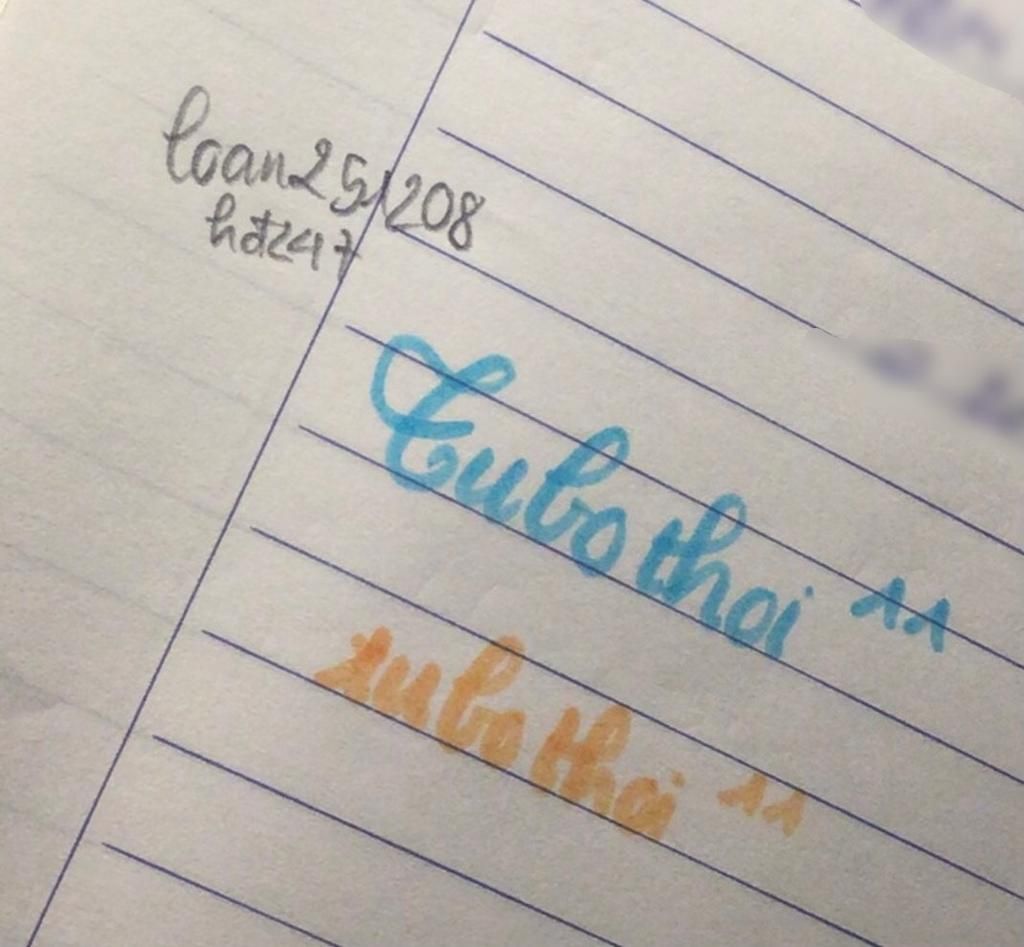 loan251208
hdt247
Tubothoi 11
tubothoi 11